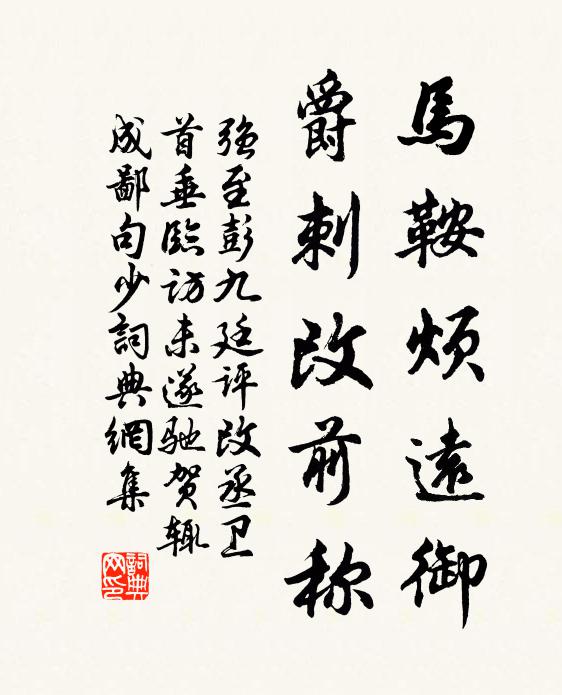 馬鞍煩遠御
爵刺改前称
强至彭九廷评改丞卫
首垂臨訪未遂驰贺辄
成鄙句少詞典網集
詞典網印